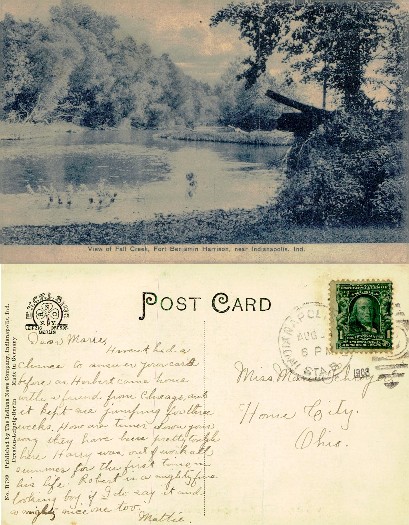 View of Fall Creek, Fort Benjamin Harrison, near Indianapolis, Ind.
POST CARD
EXCELSIOR
BERLIN
No. R 790 Published by The Indiana News Company, Indianapolis, Ind.
Germany
INDIANAPOLIS
AUG
6 PM
STA.
1908
Miss
Home City.
Ohio.
Dear Marie,
Have not had a
chance to answer your card
before as Herbert came home
with a friend from Chicago and
it kept me jumping for three
weeks. How are times down your
way they have been pretty tough
here. Harry was out of work all
summer for the first time in
his life. Robert is a mighty fine
looking boy if I do say it and
a mighty nice one too.
Mattie.